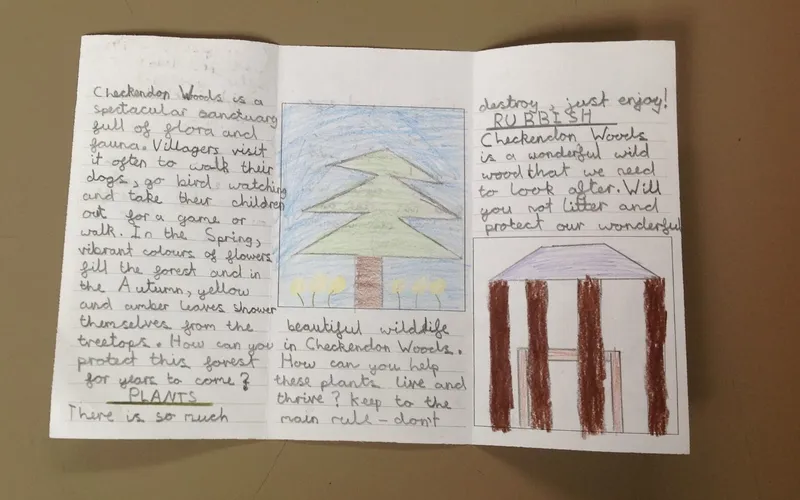 Checkendon Woods is a
spectacular sanctuary
full of flora and
fauna. Villagers visit
it often to walk their
dogs, go bird watching
and take their children
out for a game or
walk. In the Spring,
vibrant colours of flowers
fill the forest and in
the Autumn, yellow
and amber leaves shower
themselves from the
treetops. How can you
protect this forest
for years to come?
PLANTS
There is so much
beautiful wildlife
in Checkendon Woods.
How can you help
these plants live and
thrive? Keep to the
main rule - don't
destroy, just enjoy!
RUBBISH
Checkendon Woods
is a wonderful wild
wood that we need
to look after. Will
you not litter and
protect our wonderful